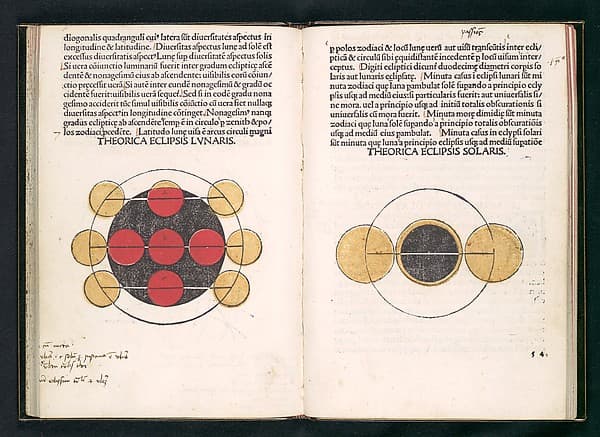 diogonalis quadrãguli cuiꝰ latera sũt diuersitates aspectus in
longitudine & latitudine. Diuersitas aspectus lunę ad solẽ est
excessus diuersitatis aspectꝰ Lunę sup diuersitatẽ aspectus solis
Si uera cõiunctio luminariũ fuerit inter gradum eclipticę ascẽ
dentẽ & nonagesimũ eius ab ascendente: uisibilis eorũ cõiun/
ctio pręcessit uerã. Si aũt inter eundẽ nonagesimũ & gradũ oc
cidentẽ fuerit: uisibilis uerã sequeť. Sed si in eodẽ gradu nona
gesimo acciderit tũc simul uisibilis cõiũctio cũ uera fiet nullaq;
diuersitas aspectꝰ in longitudine cõtinget. Nonagesimꝰ nanq;
gradus eclipticę ab ascẽdẽte semp̱ ẽ in circulo p̱ zenith & po/
los zodiaci p̱cedẽte. Latitudo lunę uisa ẽ arcus circuli magni
THEORICA ECLIPSIS LVNARIS.
p̱ polos zodiaci & locũ lunę uerũ aut uisũ transeũtis inter ecli/
pticã & circulũ sibi ęquidistantẽ incedentẽ p̱ locũ uisum inter/
ceptus. Digiti ecliptici dicunť duodecimę diametri corpis so
laris aut lunaris eclipsatę. Minuta casus ĩ eclipsi lunari sũt mi
nuta zodiaci quę luna pambulat solẽ supando a principio ecly
psis usq; ad mediũ eius: si particularis fuerit: aut uniuersalis si/
ne mora. uel a principio usq; ad initiũ totalis obscurationis si
uniuersalis cũ mora fuerit. Minuta morę dimidię sũt minuta
zodiaci quę luna solẽ supando a principio totalis obscuratiõis
usq; ad mediũ eius pambulat. Minuta casus in eclypsi solari
sũt minuta quę luna a principio eclipsis usq; ad mediũ supatiõe
THEORICA ECLIPSIS SOLARIS.